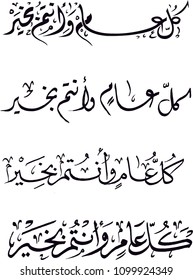 كل عام وأنتم بخير
كل عامٍ وأنتم بخير
كُلُّ عَامٍ وَأَنْتُمْ بِخَيْرٍ
كُلُّ عَامٍ وَأَنْتُمْ بِخَيْرٍ
shutterstock.com · 1099924349